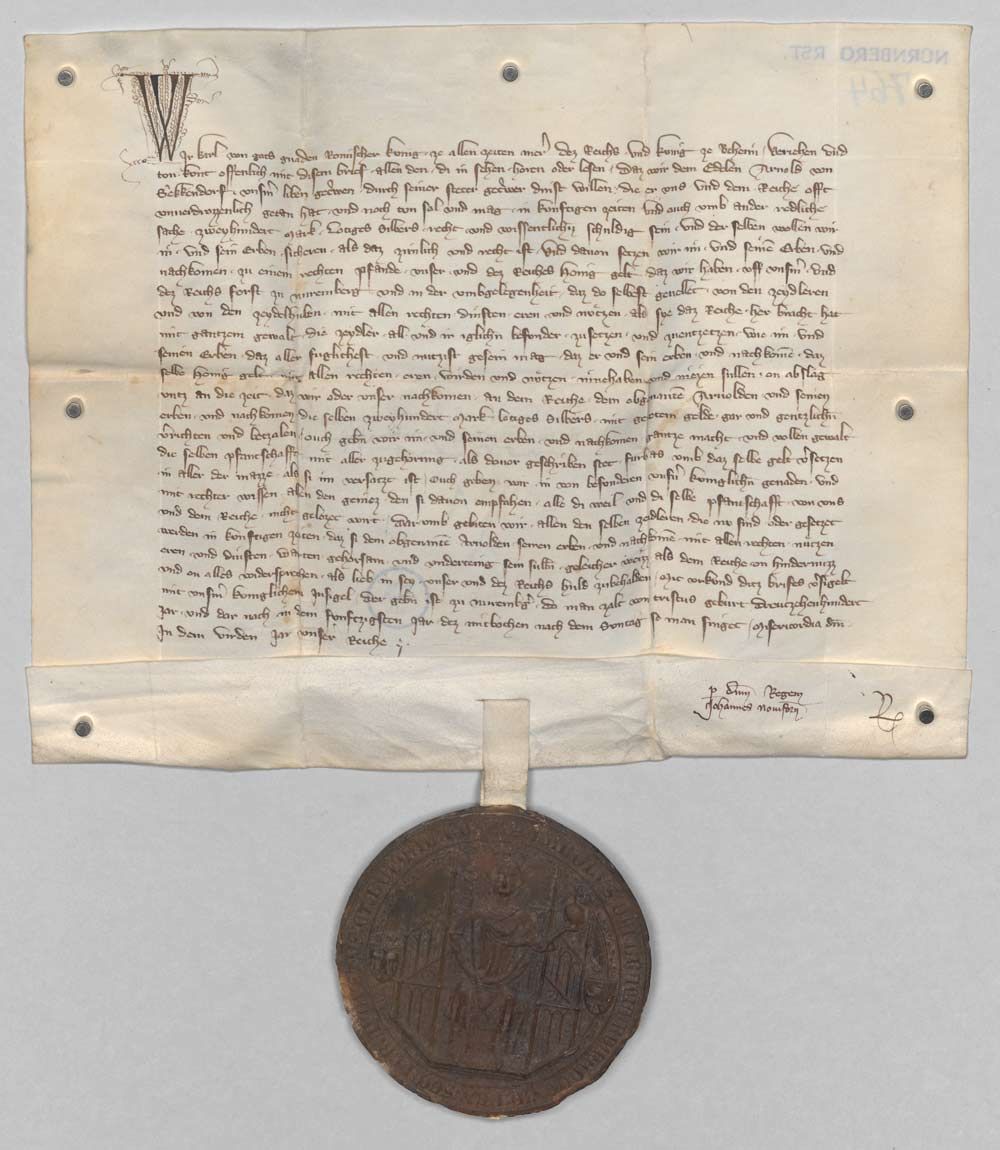 NÜRNBERG RST.
764
Wir karl von gots gnaden Romischer konig ze allen zeiten merer dez Reichs vnd konig ze Behem veriehen vnd
tun kunt offenlich mit disem brief allen den di in sehen horen oder lesen daz wir dem Edelen Arnold von
Sekkendorf vnserm liben getrewen durch seiner steter getrewer dinst willen die er vns vnd dem Reiche offt
vnuerdrozzenlich getan hat vnd noch tun sol vnd mag in konftigen zeiten vnd ouch vmb ander redliche
sache zweyhundert mark lotiges silbers recht vnd wissentlichen schuldig sein vnd der selben wollen wir
in vnd sein Erben sicheren als daz zimlich vnd recht ist vnd dauon setzen wir im vnd seinen Erben vnd
nachkomen zu einem rechten pfande vnser vnd dez Reiches honig gelt daz wir haben vff vnserm vnd
dez Reichs forst zu nuremberg vnd in der vmbgelegenheit daz do selbest geuellet von den zeydleren
vnd von den zeydelhuben mit allen rechten dinsten eren vnd nutzen als sye daz Reiche her bracht hat
mit gantzem gewalt die zeydler all vnd ir iglichen besonder zusetzen vnd zuentzetzen wie im vnd
seinen Erben daz aller fuglichest vnd nutzist gesein mag daz er vnd sein erben vnd nachkomen daz
selbe honig gelt mit allen rechten eren wirden vnd nutzen innehaben vnd niezen sullen on abslag
vntz an die zeit daz wir oder vnser nachkomen an dem Reiche dem obgenanten Arnolden vnd seinen
erben vnd nachkomen die selben zweyhundert mark lotiges silbers mit gereitem gelde gar vnd gentzlichen
verichten vnd betzalen ouch geben wir im vnd seinen erben vnd nachkomen gantze macht vnd vollen gewalt
die selben pfantschafft mit aller zugehorung als douor geschriben stet furbas vmb daz selbe gelt versetzen
in aller der mazze als si im versatzt ist Ouch geben wir in von besonderen vnsern kuniglichen genaden vnd
mit rechter wissen allen den geniez den si dauon empfahen alle di weil vnd di selbe pfantschafft von vns
vnd dem Reiche nicht gelozet wirt dar vmb gebiten wir allen den selben zeidleren die nv sind oder gesetzet
werden in konftigen zeiten daz si dem obgenanten Arnolden seinen erben vnd nachkomen mit allen rechten nutzen
eren vnd dinsten warten gehorsam vnd vndertenig sein sullen geleicher weiz als dem Reiche on hindernuzz
vnd on alles widersprechen als lieb in sey vnser vnd dez Reichs huld zubehalden Mit vrkund ditz brifes versigelt
mit vnserm kuniglichem Insigel der geben ist zu nuremberg do man zalt von cristus geburt dreutzehenhundert
Jar vnd dar nach in dem funftzigsten Jar dez mitbochen nach dem Suntag so man singet misericordia dni
In dem virden Jar vnser Reiche
p dnm Regem
Johannes Noviforn
R